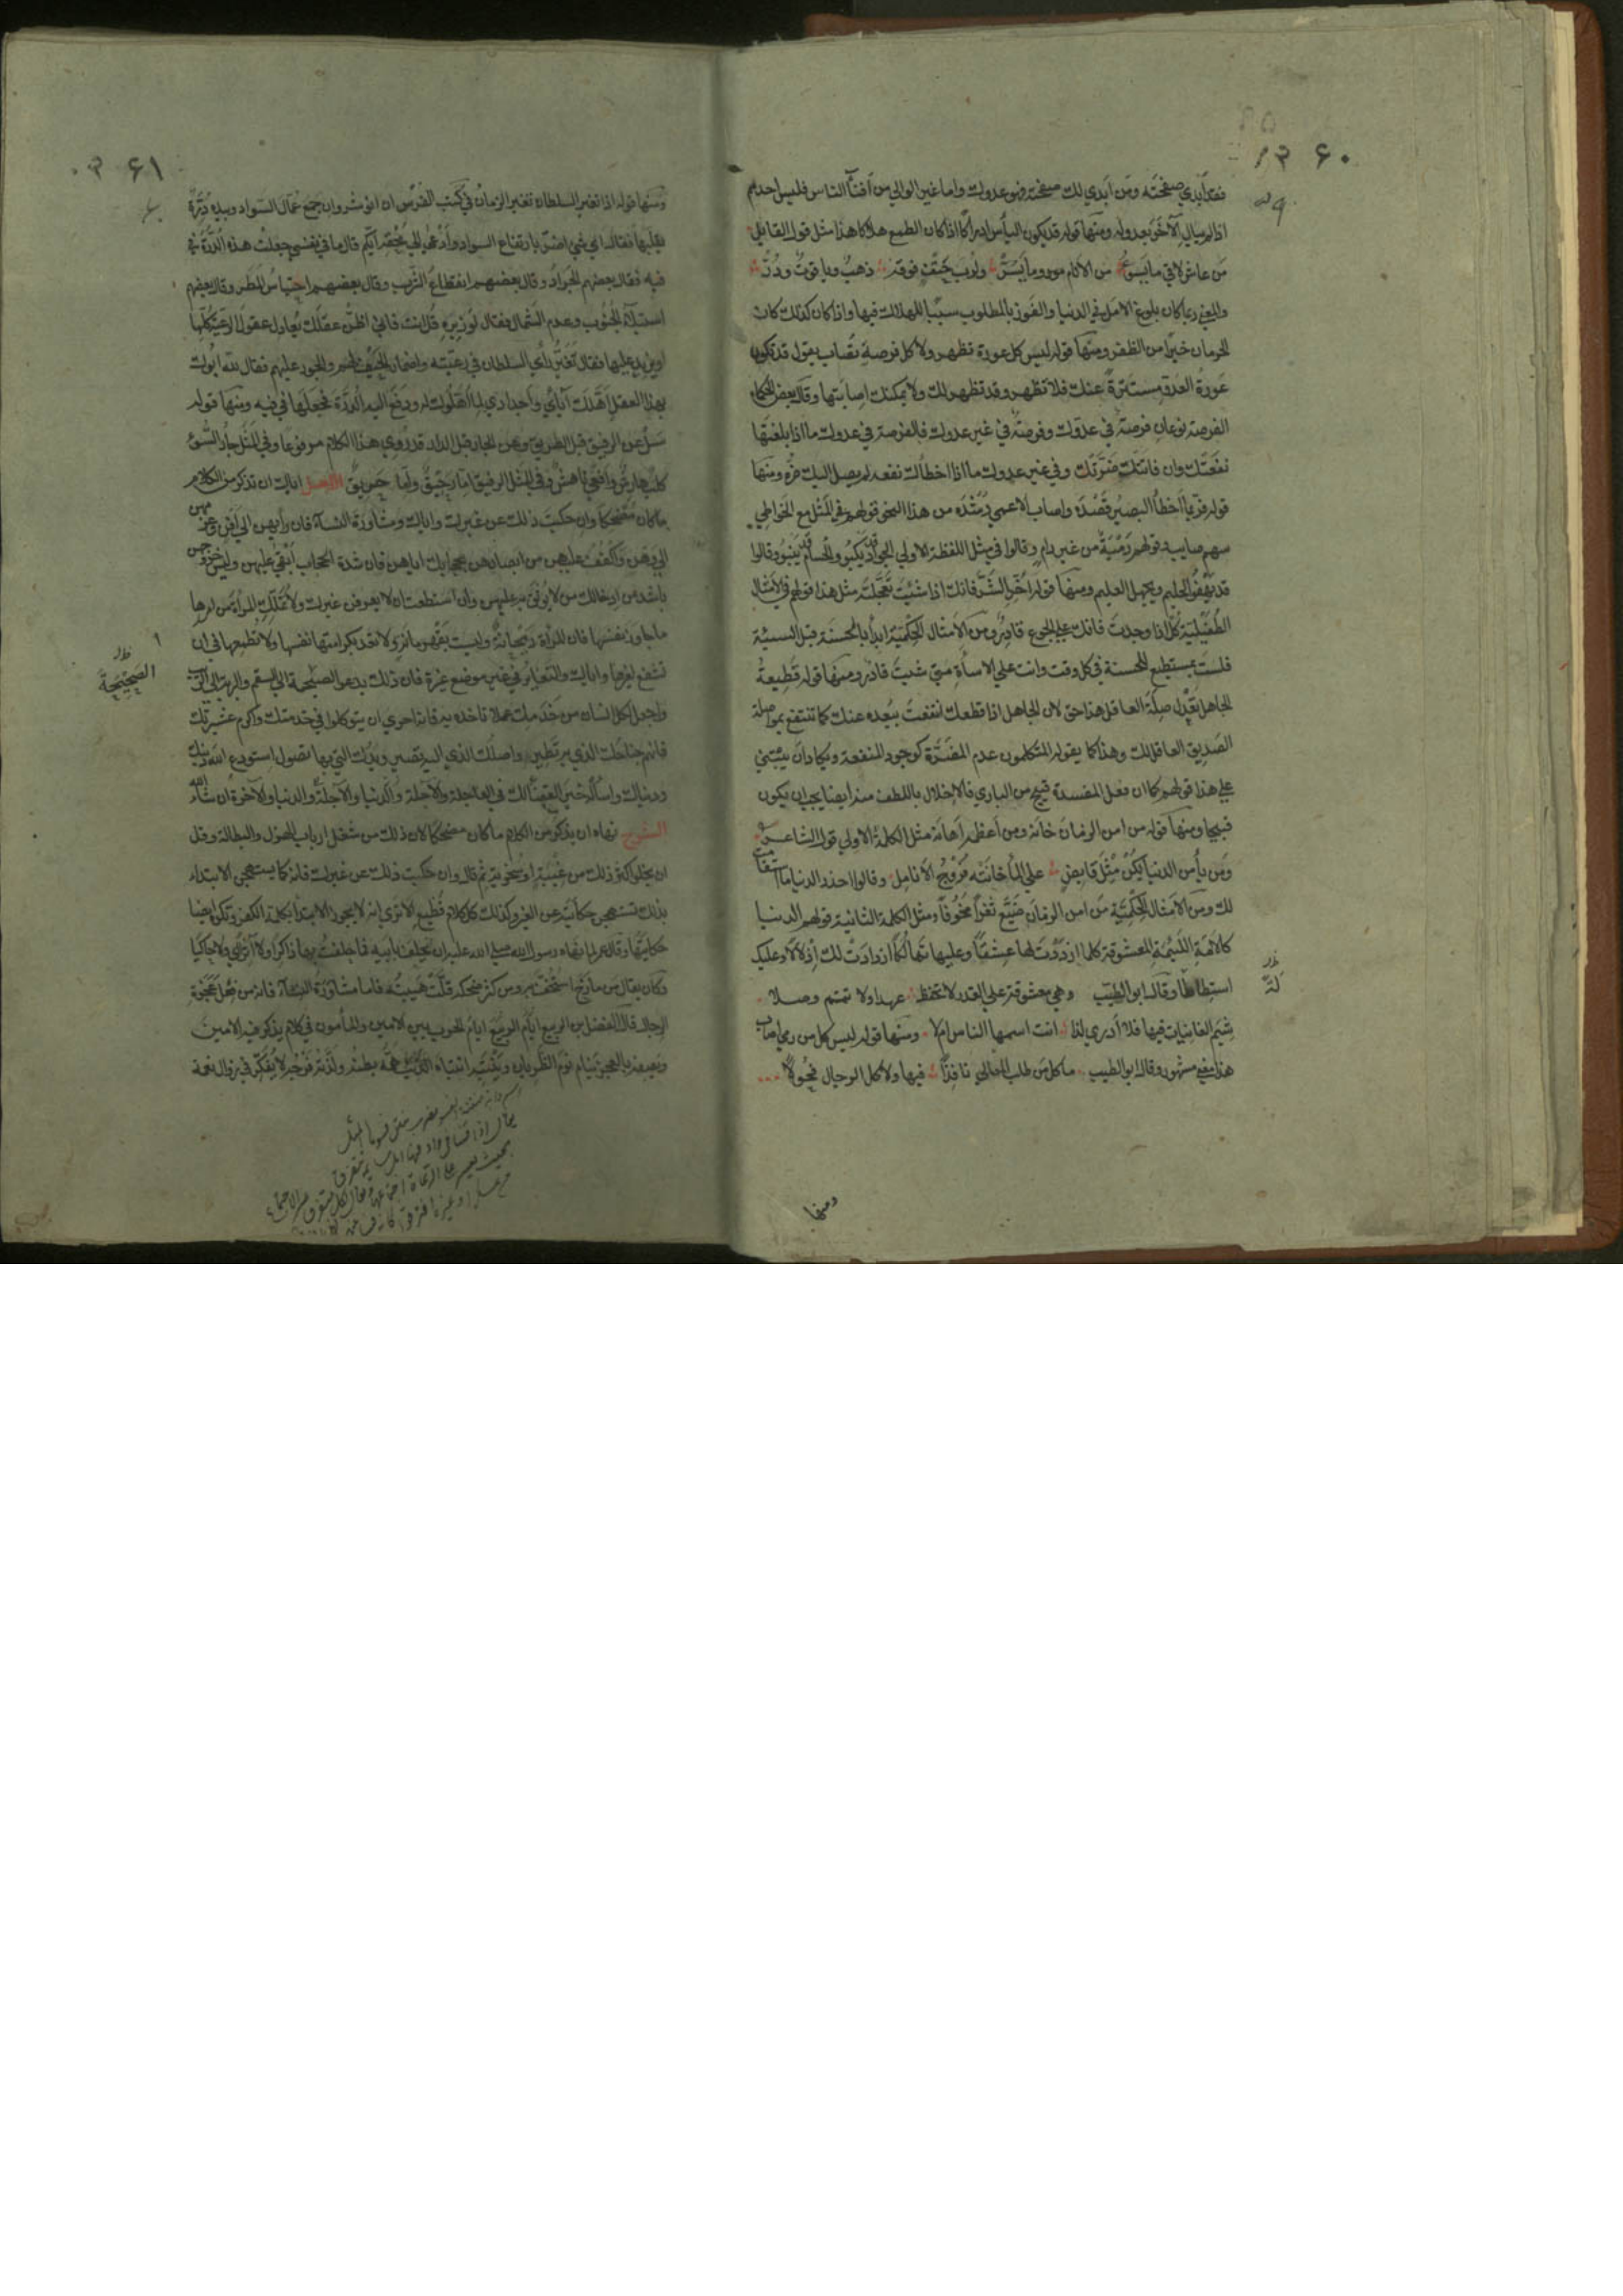 ۳۶۰
فقد أبدي صفحته ومن أبدي لك صفحته فهو عدوك واما غير الوالي من أفناء الناس فليس احدهم
اذا لم يبال الآخر بعدو له ومنها قوله قد يكون اليأس ادراكا اذا كان الطمع هلاكا هذا مثل قول القايل
من عاش لاقي ما يسوء من الامور وما يسر ولرب حتف فوقه ذهب وياقوت ودر
والمعني ربما كان بلوغ الامل في الدنيا والفوز بالمطلوب سببا للهلاك فيها واذا كان كذلك كان
الحرمان خيرا من الظفر ومنها قوله ليس كل عورة تظهر ولا كل فرصة تصاب يقول قد تكون
عورة العدو مستترة عنك فلا تظهر وقد تظهر لك ولا يمكنك اصابتها وقال بعض الحكماء
الفرصة نوعان فرصة في عدوك وفرصة في غير عدوك فالفرصة في عدوك ما اذا بلغتها
نفعتك وان فاتتك ضرتك وفي غير عدوك ما اذا اخطأك نفعه لم يصل اليك ضره ومنها
قوله فربما أخطأ البصير قصده واصاب الاعمي رشده من هذا النحو قولهم في المثل مع الخواطي
سهم صايب وقولهم رمية من غير رام وقالوا في مثل اللفظة الاولي الجواد قد يكبو والحسام قد ينبو وقالوا
قد يهفو الحليم ويجهل العليم ومنها قوله أخر الشر فانك اذا شئت تعجلته مثل هذا قولهم في الامثال
الطفيلية كل اذا وجدت فانك علي الجوع قادر ومن الامثال الحكمية ابدأ بالحسنة قبل السيئة
فلست بمستطيع للحسنة في كل وقت وانت علي الاساءة متي شيت قادر ومنها قوله قطيعة
الجاهل تعدل صلة العاقل هذا حق لان الجاهل اذا قطعك انتفعت ببعده عنك كما تنتفع بمواصلة
الصديق العاقل لك وهذا كما يقوله المتكلمون عدم المضرة كوجود المنفعة ويكاد ان يبتني
علي هذا قولهم كما ان فعل المفسدة قبيح من الباري فالاخلال باللطف منه ايضا يجب ان يكون
قبيحا ومنها قوله من امن الزمان خانه ومن أعظمه أهانه مثل الكلمة الاولي قول الشاعر
ومن يأمن الدنيا يكن مثل قابض علي الماء خانته فروج الانامل وقالوا احذر الدنيا ما استقامت
لك ومن الامثال الحكمية من امن الزمان ضيع ثغرا مخوفا ومثل الكلمة الثانية قولهم الدنيا
كالامة اللئيمة المعشوقة كلما ازددت لها عشقا وعليها تهالكا ازدادت لك اذلالا وعليك
استطالطا وقال ابو الطيب وهي معشوقة علي الغدر لا تحفظ عهدا ولا تتمم وصلا
شيم الغانيات فيها فلا أدري لذا انث اسمها الناس ام لا ومنها قوله ليس كل من رمي اصاب
هذا معني مشهور وقال ابو الطيب ما كل من طلب المعالي نافذا فيها ولا كل الرجال فحولا
ومنها
۳۶۱
ومنها قوله اذا تغير السلطان تغير الزمان في كتب الفرس ان انوشروان جمع عمال السواد وبيده درة
يقلبها فقال اي شئ اضر بارتفاع السواد وأدعي الي محقه ايكم قال ما في نفسي جعلت هذه الدرة في
فيه فقال بعضهم الجراد وقال بعضهم انقطاع الشرب وقال بعضهم احتباس المطر وقال بعضهم
استيلاء الجنوب وعدم الشمال فقال لوزيره قل انت فاني اظن عقلك يعادل عقول الرعية كلها
او يزيد عليها فقال تغير رأي السلطان في رعيته واضمار الحيف لهم والجور عليهم فقال لله ابوك
بهذا العقل أهلك آبائي وأجدادي لما أهلوك له ودفع اليه الدرة فجعلها في فيه ومنها قوله
سل عن الرفيق قبل الطريق وعن الجار قبل الدار قد روي هذا الكلام مرفوعا وفي المثل جار السوء
كلب هارش وافعي ناهش وفي المثل الرفيق اما رحيق واما حريق الاصل اياك ان تذكر من الكلام
ما كان مضحكا وان حكيت ذلك عن غيرك واياك ومشاورة النساء فان رأيهن الي افن وعزمهن
الي وهن واكفف عليهن من ابصارهن بحجابك اياهن فان شدة الحجاب أبقي عليهن وليس خروجهن
باشد من ادخالك من لا يوثق به عليهن وان استطعت ان لا يعرفن غيرك ولا تملك المرأة من امرها
ما جاوز نفسها فان المرأة ريحانة وليست بقهرمانة ولا تعد بكرامتها نفسها ولا تطمعها في ان
تشفع لغيرها واياك والتغاير في غير موضع غيرة فان ذلك يدعو الصحيحة الي السقم والبريئة الي الريب
الصحيحة
واجعل لكل انسان من خدمك عملا تاخذه به فانه احري ان يتواكلوا في خدمتك واكرم عشيرتك
فانهم جناحك الذي به تطير واصلك الذي اليه تصير ويدك التي بها تصول استودع الله دينك
ودنياك واسأله خير القضاء لك في العاجلة والآجلة والدنيا والآخرة ان شاء الله
الشرح نهاه ان يذكر من الكلام ما كان مضحكا لان ذلك من شغل ارباب الهزل والبطالة وقل
ان يخلو اكثر ذلك من غيبة او سخرية ثم قال وان حكيت ذلك عن غيرك فانه كما يستهجن الابتداء
بذلك تستهجن حكايته عن الغير وكذلك كل كلام فظيع الا تري انه لا يجوز الابتداء بكلمة الكفر وتكره ايضا
حكايتها وقال عمر لما نهاه رسول الله صلي الله عليه ان يحلف بأبيه فما حلفت بها ذاكرا ولا آثرا ولا حاكيا
وكان يقال من مازح استخف به ومن كثر ضحكه قلت هيبته فاما مشاورة النساء فانه من فعل عجزة
الرجال قال الفضل بن الربيع ايام الحرب بين الامين والمأمون في كلام يذكر فيه الامين
ويصفه بالعجز ينام نوم الظربان وينتبه انتباه الذئب همه بطنه ولذته فرجه لا يفكر في زوال نعمة